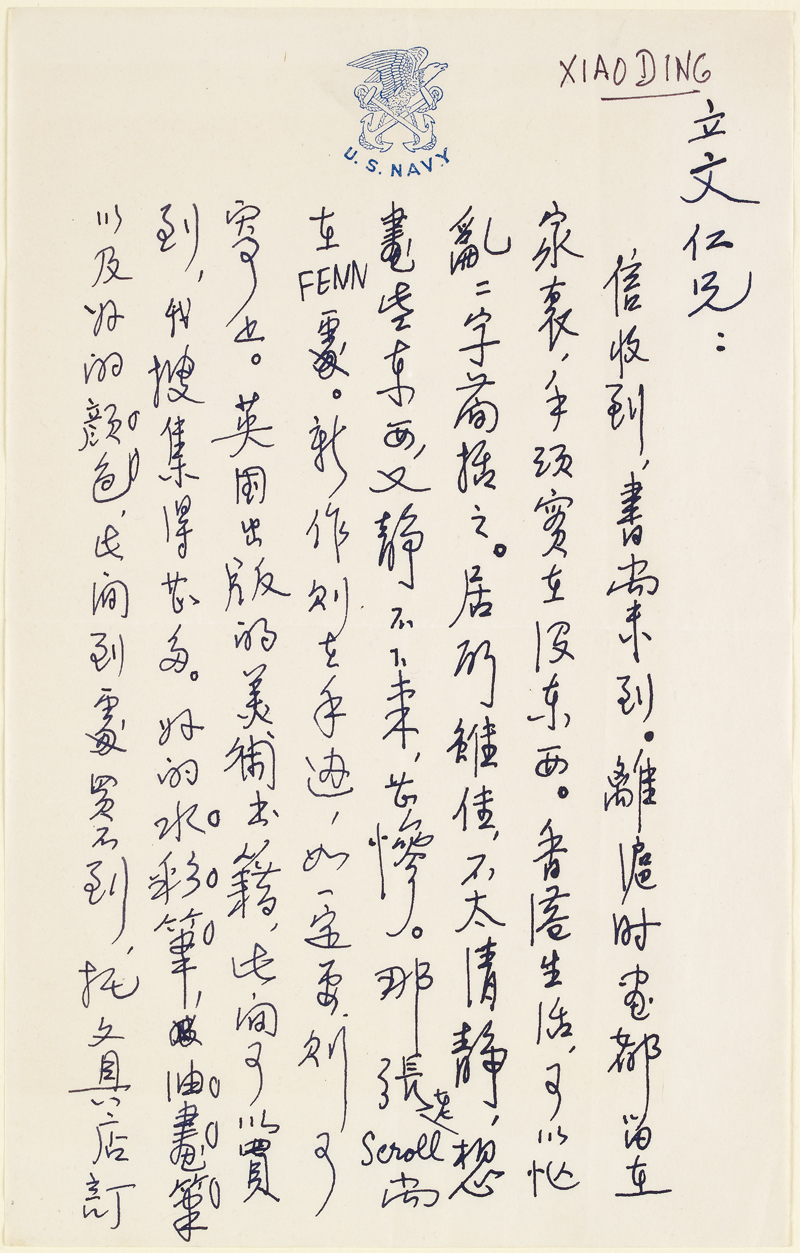 U.S. NAVY
XIAO DING
立文仁兄：
信收到，書尚未到。離滬时畫都留在
家裏，手頭實在沒东西。香港生活，可以忙
亂二字简括之。居所雖佳，不太清静，想
畫些东西，又静不下来，甚惨。那張老Scroll尚
在FENN處。新作则在手边，如一定要，则可
寄也。英国出版的美術书籍，此间可以買
到，我搜集得甚多。好的水彩筆，油畫筆
以及好的顏色，此间到處買不到，托文具店訂